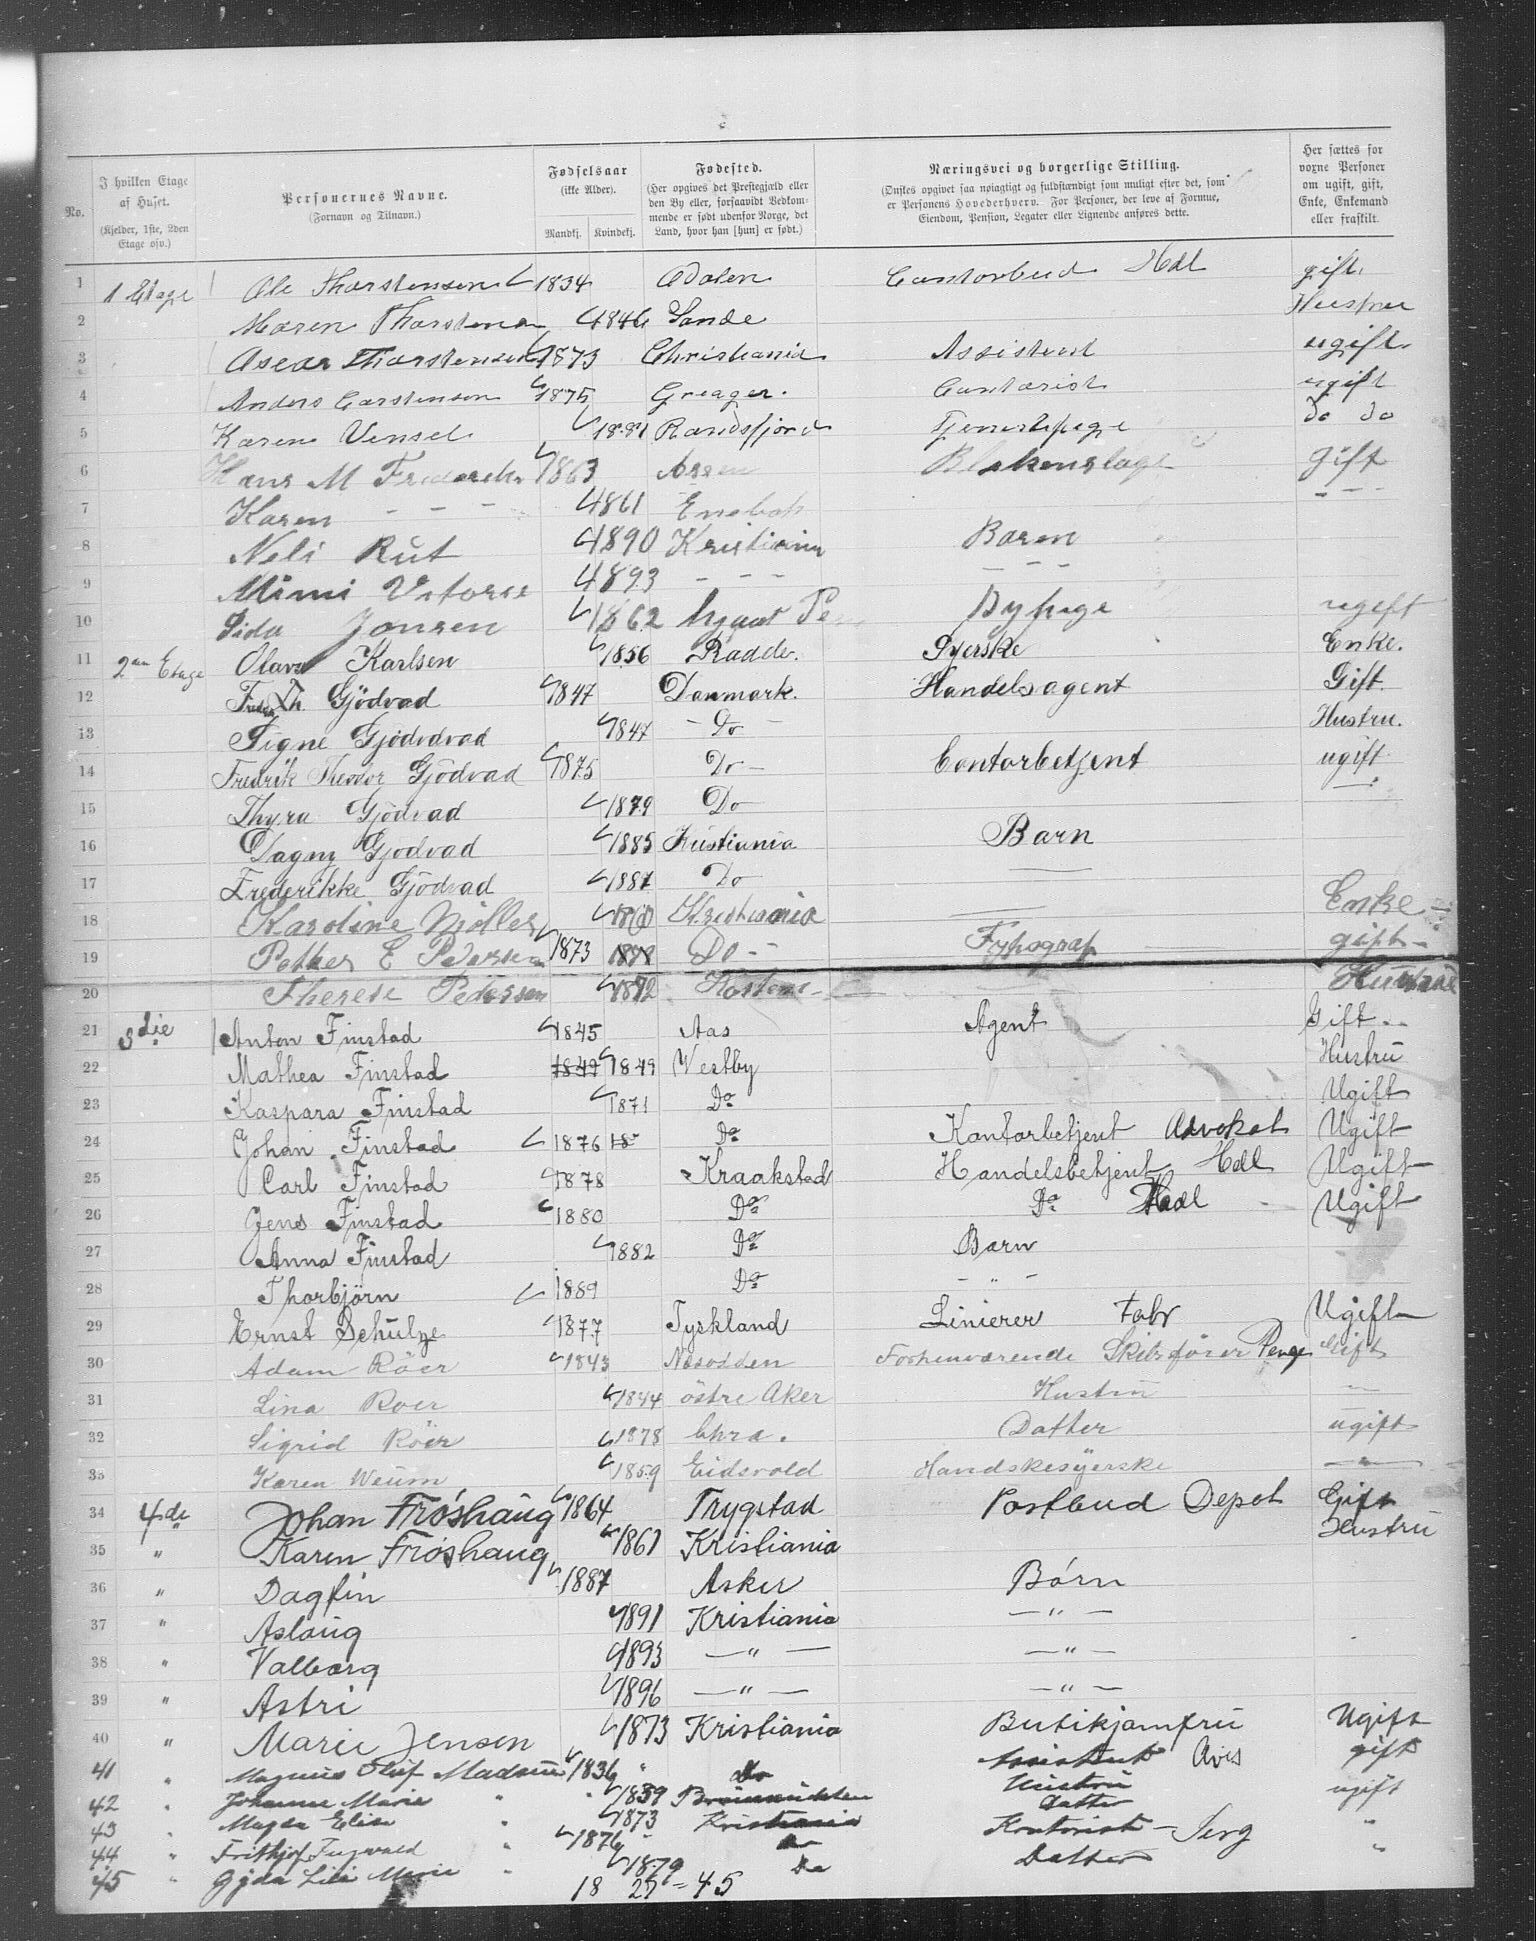 No. | I hvilken Etage af Huset. (Kjelder, 1ste, 2den Etage osv.) | Personernes Navne. (Fornavn og Tilnavn.) | Fødselsaar (ikke Alder). Mandkj. Kvindekj. | Fødested. (Her opgives det Prestegjæld eller den By eller, forsaavidt Vedkommende er født udenfor Norge, det Land, hvor han [hun] er født.) | Næringsvei og borgerlige Stilling. (Ønskes opgivet saa nøiagtigt og fuldstændigt som muligt efter det, som er Personens Hovederhverv. For Personer, der leve af Formue, Eiendom, Pension, Legater eller Lignende anføres dette.) | Her sættes for voxne Personer om ugift, gift, Enke, Enkemand eller fraskilt.
1 1 Etage Ole Thorstensen 1834 Adalen Contorbud Hdl gift.
2 Maren Thorstensen 1846 Sande Hustru
3 Oscar Thorstensen 1873 Christiania Assistent ugift
4 Anders Carstensen 1875 Greager. Contorist ugift
5 Karen Vensel 1881 Randsfjord Tjenestepige Do Do
6 Hans M Frederik 1863 gift
7 Karen - - - 1861 Enebak - - -
8 Neli Rut 1890 Kristiania Baren
9 Mimi 1893 - - - - - -
10 Jonsen 1862 Sypige ugift
11 2den Etage Olava Karlsen 1856 Radde. Syerske Enke.
12 Th. Gjödvad 1847 Danmark. Handelsagent Gift.
13 Signe Gjödvad 1847 - Do - Hustru.
14 Fredrik Theodor Gjödvad 1875 Do - Contorbetjent ugift
15 Thyra Gjödvad 1879 Do
16 Dagny Gjodvad 1885 Kristiania Barn
17 Frederikke Gjödvad 1887 Do
18 Karoline Møller Kristiania Enke
19 Petter E Pedersen 1873 Do - Typograf gift -
20 Therese Pedersen 1872 Hustrue
21 3die Anton Finstad 1845 Aas Agent Gift
22 Mathea Finstad 1849 1849 Vestby Hustru
23 Kaspara Finstad 1871 Do Ugift
24 Johan Finstad 1876 18 Do Kontorbetjent Advokat Ugift
25 Carl Finstad 1878 Kraakstad Handelsbetjent Hdl Ugift
26 Jens Finstad 1880 Do Do Hdl Ugift
27 Anna Finstad 1882 Do Barn
28 Thorbjörn 1889 Do - " -
29 Ernst Schulze 1877 Tyskland Linierer Fabr Ugift
30 Adam Röer 1843 Næsodden Forhenværende Skibsfører Penge Gift
31 Lina Roer 1844 östre Aker Hustru
32 Sigrid Röer 1878 Chra. Datter ugift
33 Karen Weum 1859 Eidsvold Handskesÿerske
34 4de Johan Frøshaug 1864 Trygstad Postbud Depot Gift
35 " Karen Frøshaug 1861 Kristiania Hustru
36 " Dagfin 1887 Asker Børn
37 " Aslaug 1891 Kristiania - " -
38 " Valborg 1893 - " - - " -
39 " Astri 1896 - " - - " -
40 " Marie Jensen 1873 Kristiania Butikjomfru Ugift
41 " Magnus Oluf Madsen 1836 Do Avis gift
42 " Johanne Marie " 1839 Hustru
43 " Magda Elise " 1873 Kristiania Datter ugift
44 " Frithjof Ingvald " 1876 Do Kontorist - Jerg "
45 " Gyda Lili Marie " 1879 Do Datter "
18 27 = 45